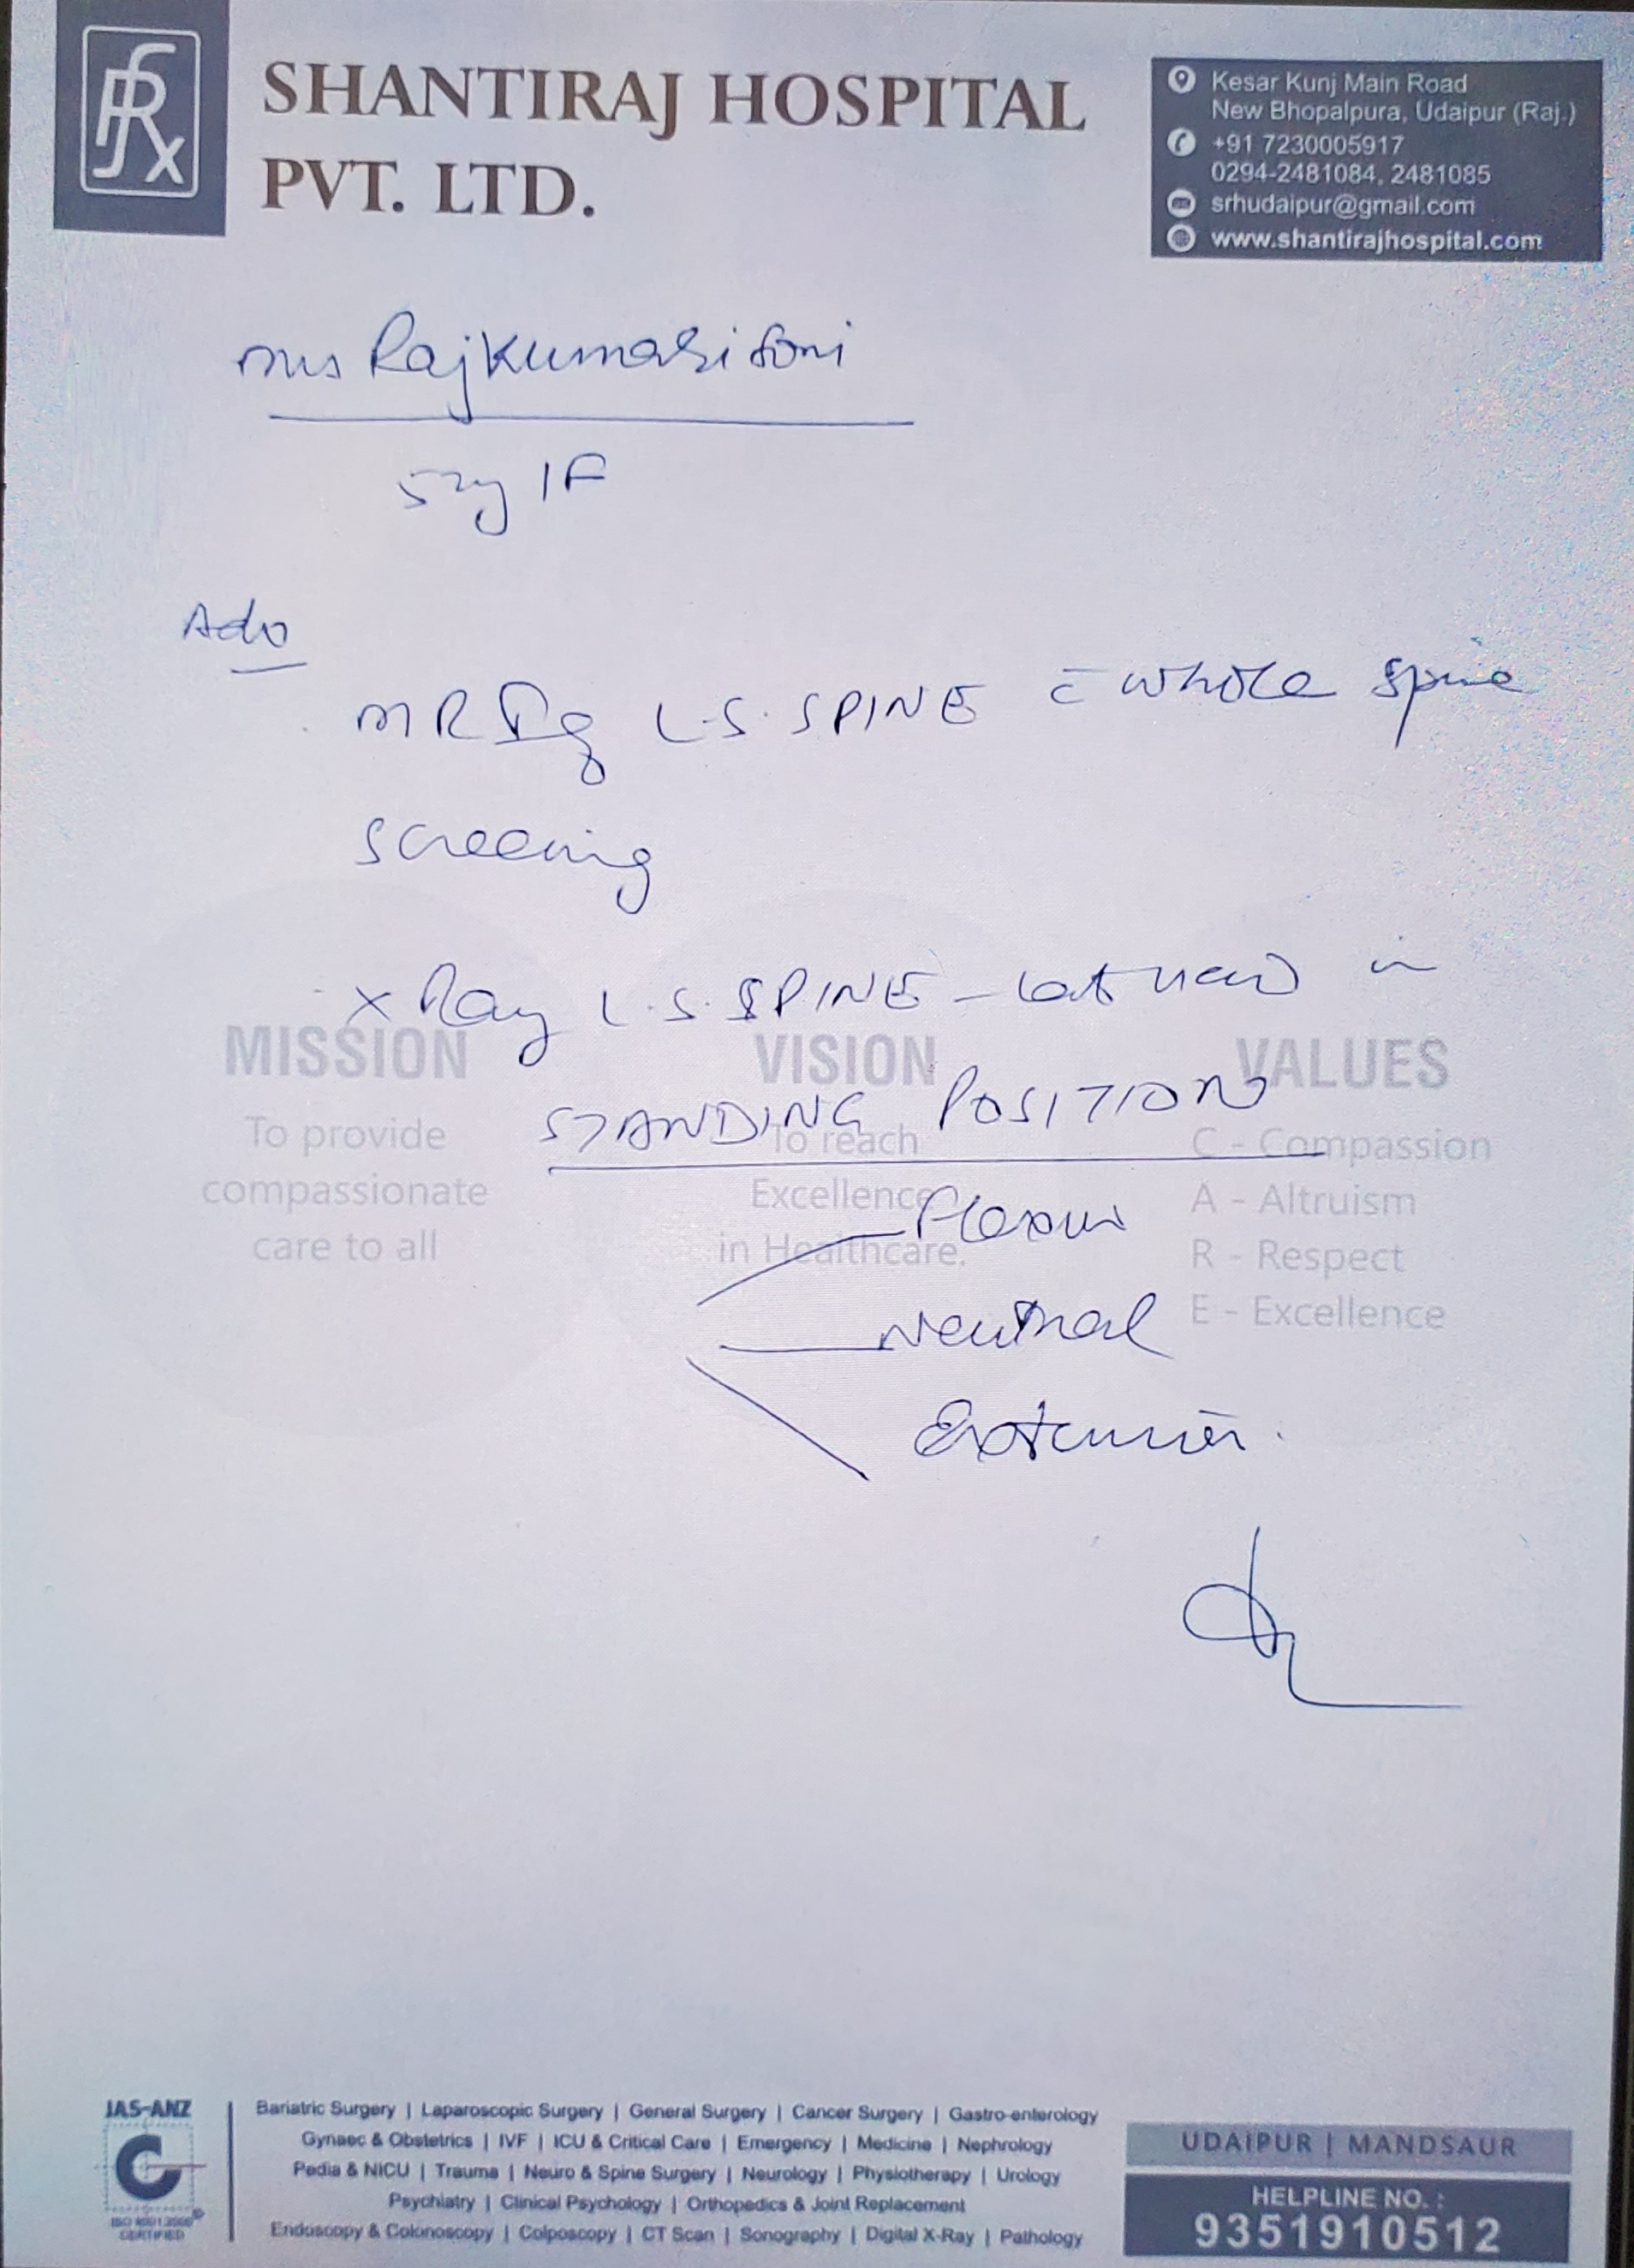 SHANTIRAJ HOSPITAL
PVT. LTD.
Kesar Kunj Main Road
New Bhopalpura, Udaipur (Raj.)
+91 7230005917
0294-2481084, 2481085
srhudaipur@gmail.com
www.shantirajhospital.com
Mrs Rajkumari Soni
52y / F
Adv
MRI of L.S. SPINE c̄ whole spine
screening
X Ray L.S. SPINE - lat view in
STANDING POSITION
Flexion
Neutral
Extension.
MISSION
To provide
compassionate
care to all
VISION
To reach
Excellence
in Healthcare.
VALUES
C - Compassion
A - Altruism
R - Respect
E - Excellence
JAS-ANZ
CERTIFIED
Bariatric Surgery | Laparoscopic Surgery | General Surgery | Cancer Surgery | Gastro-enterology
Gynaec & Obstetrics | IVF | ICU & Critical Care | Emergency | Medicine | Nephrology
Pedia & NICU | Trauma | Neuro & Spine Surgery | Neurology | Physiotherapy | Urology
Psychiatry | Clinical Psychology | Orthopedics & Joint Replacement
Endoscopy & Colonoscopy | Colposcopy | CT Scan | Sonography | Digital X-Ray | Pathology
UDAIPUR | MANDSAUR
HELPLINE NO. :
9351910512